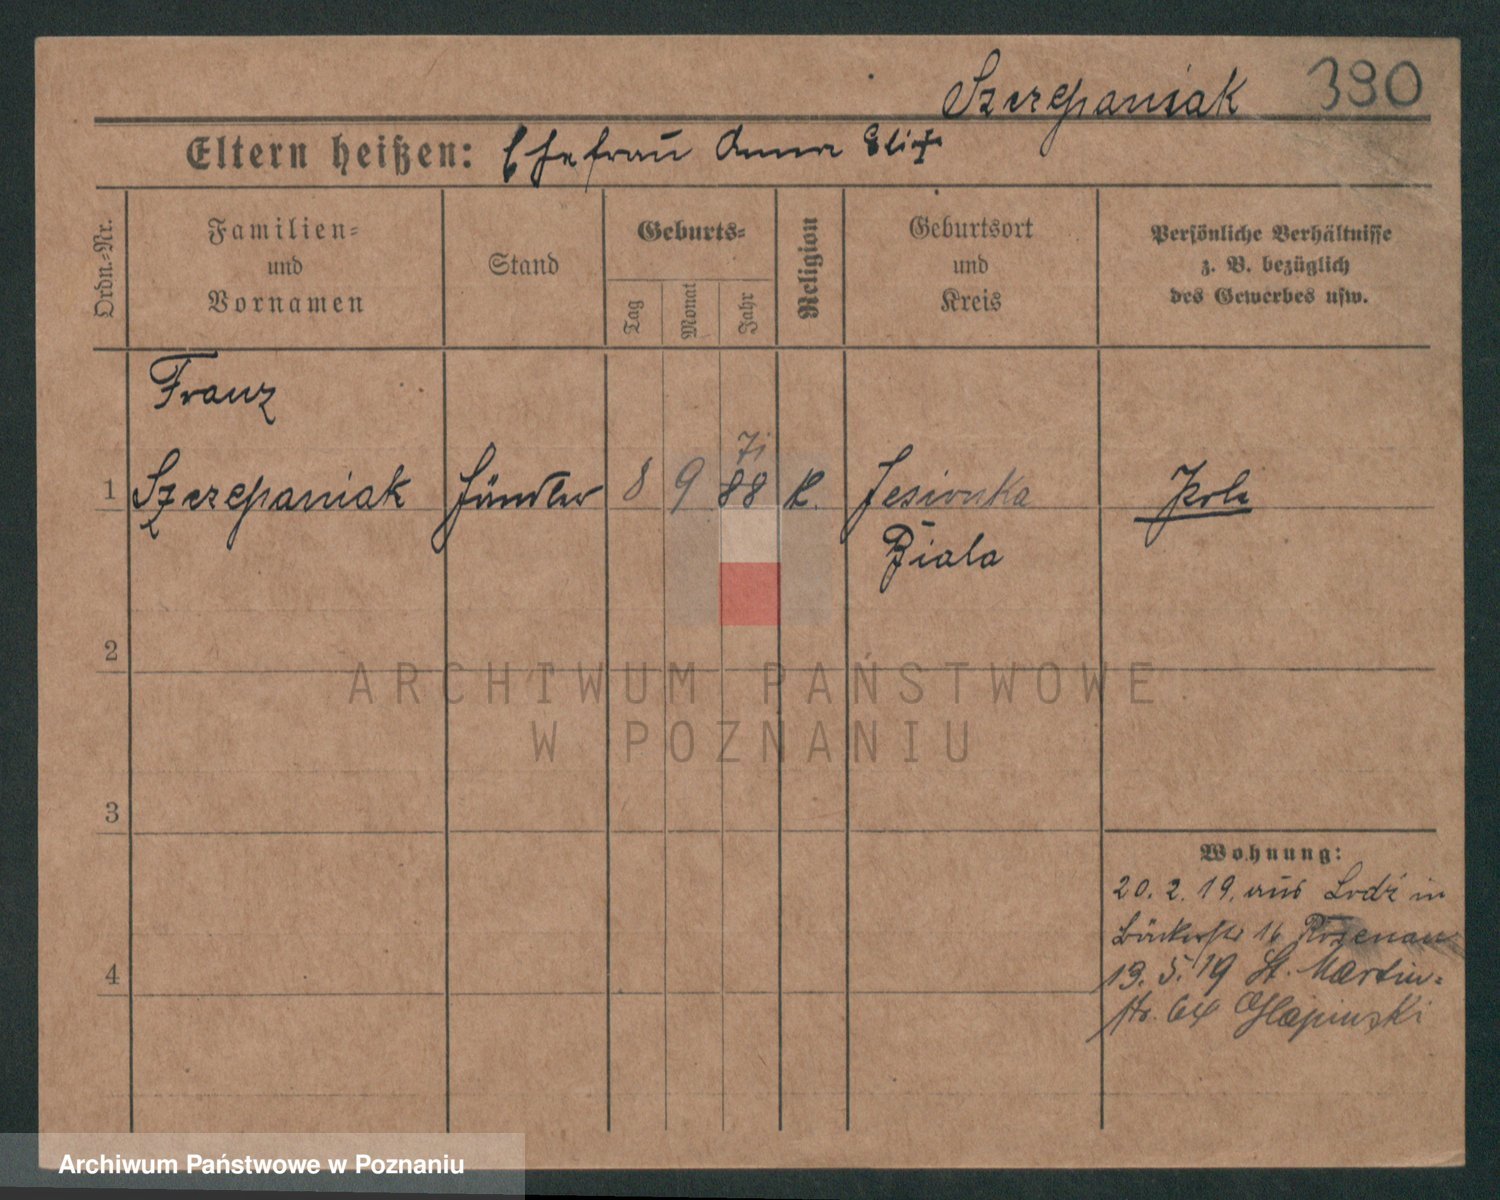 Szczepaniak 390
Eltern heißen: Ehefrau Anna
Ordn.-Nr.
Familien-
und
Vornamen
Stand
Geburts-
Tag
Monat
Jahr
Religion
Geburtsort
und
Kreis
Persönliche Verhältnisse
z. B. bezüglich
des Gewerbes usw.
Franz
1 Szczepaniak Händler 8 9 88 K. Jesionka Pole
Biala
2
3
4
Wohnung:
20. 2. 19. aus Lodź in
Bäckerstr 16 Rozenau
13. 5. 19 St. Martin-
str. 64 Glapinski
ARCHIWUM PAŃSTWOWE
W POZNANIU
Archiwum Państwowe w Poznaniu